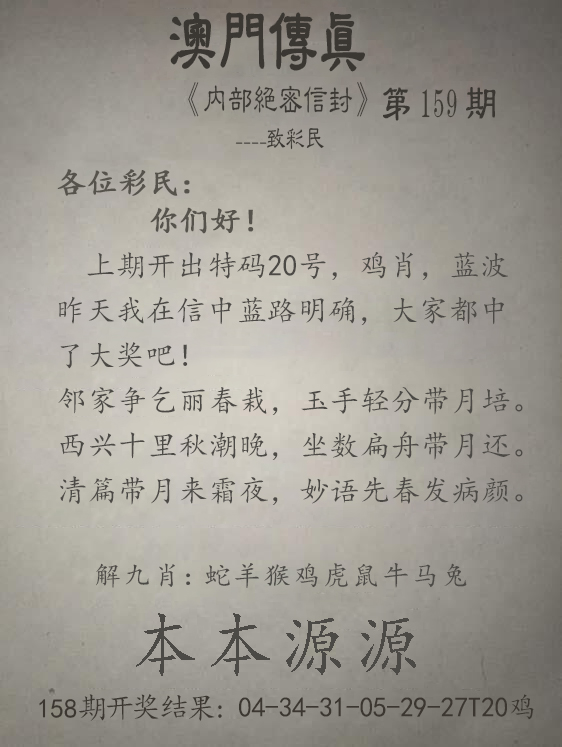 澳門傳眞
《内部絕密信封》第159期
----致彩民
各位彩民：
你们好！
上期开出特码20号，鸡肖，蓝波
昨天我在信中蓝路明确，大家都中
了大奖吧！
邻家争乞丽春栽，玉手轻分带月培。
西兴十里秋潮晚，坐数扁舟带月还。
清篇带月来霜夜，妙语先春发病颜。
解九肖：蛇羊猴鸡虎鼠牛马兔
本本源源
158期开奖结果：04-34-31-05-29-27T20鸡